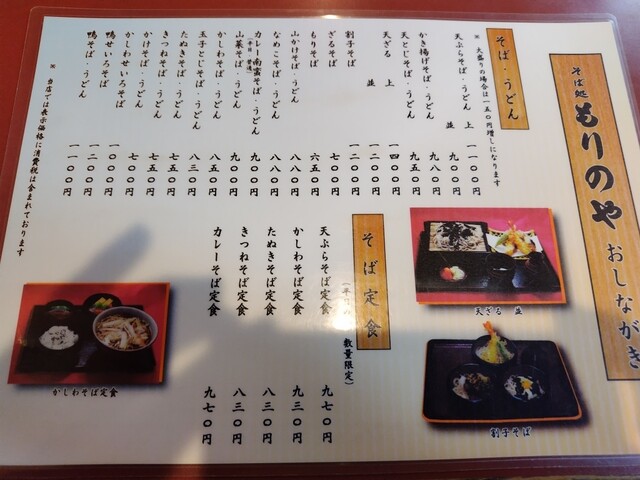 そば処 もりのや おしながき
そば・うどん
※ 大盛りの場合は一五〇円増しになります
天ぷらそば・うどん 上 一一〇〇円
並 九〇〇円
かき揚げそば・うどん 九八〇円
天とじそば・うどん 九五〇円
天ざる 上 一四〇〇円
並 一二〇〇円
割子そば 一二〇〇円
ざるそば 七〇〇円
もりそば 六五〇円
山かけそば・うどん 八八〇円
なめこそば・うどん 八八〇円
カレー南蛮そば・うどん 九〇〇円
山菜そば・うどん 九〇〇円
かしわそば・うどん 八五〇円
玉子とじそば・うどん 八三〇円
たぬきそば・うどん 七五〇円
きつねそば・うどん 七五〇円
かけそば・うどん 七〇〇円
かしわせいろそば 一〇〇〇円
鴨せいろそば 一二〇〇円
鴨そば・うどん 一一〇〇円
※ 当店では表示価格に消費税は含まれております
そば定食
数量限定)
天ぷらそば定食 九七〇円
かしわそば定食 九三〇円
たぬきそば定食 八三〇円
きつねそば定食 八三〇円
カレーそば定食 九七〇円
天ざる 並
割子そば
かしわそば定食